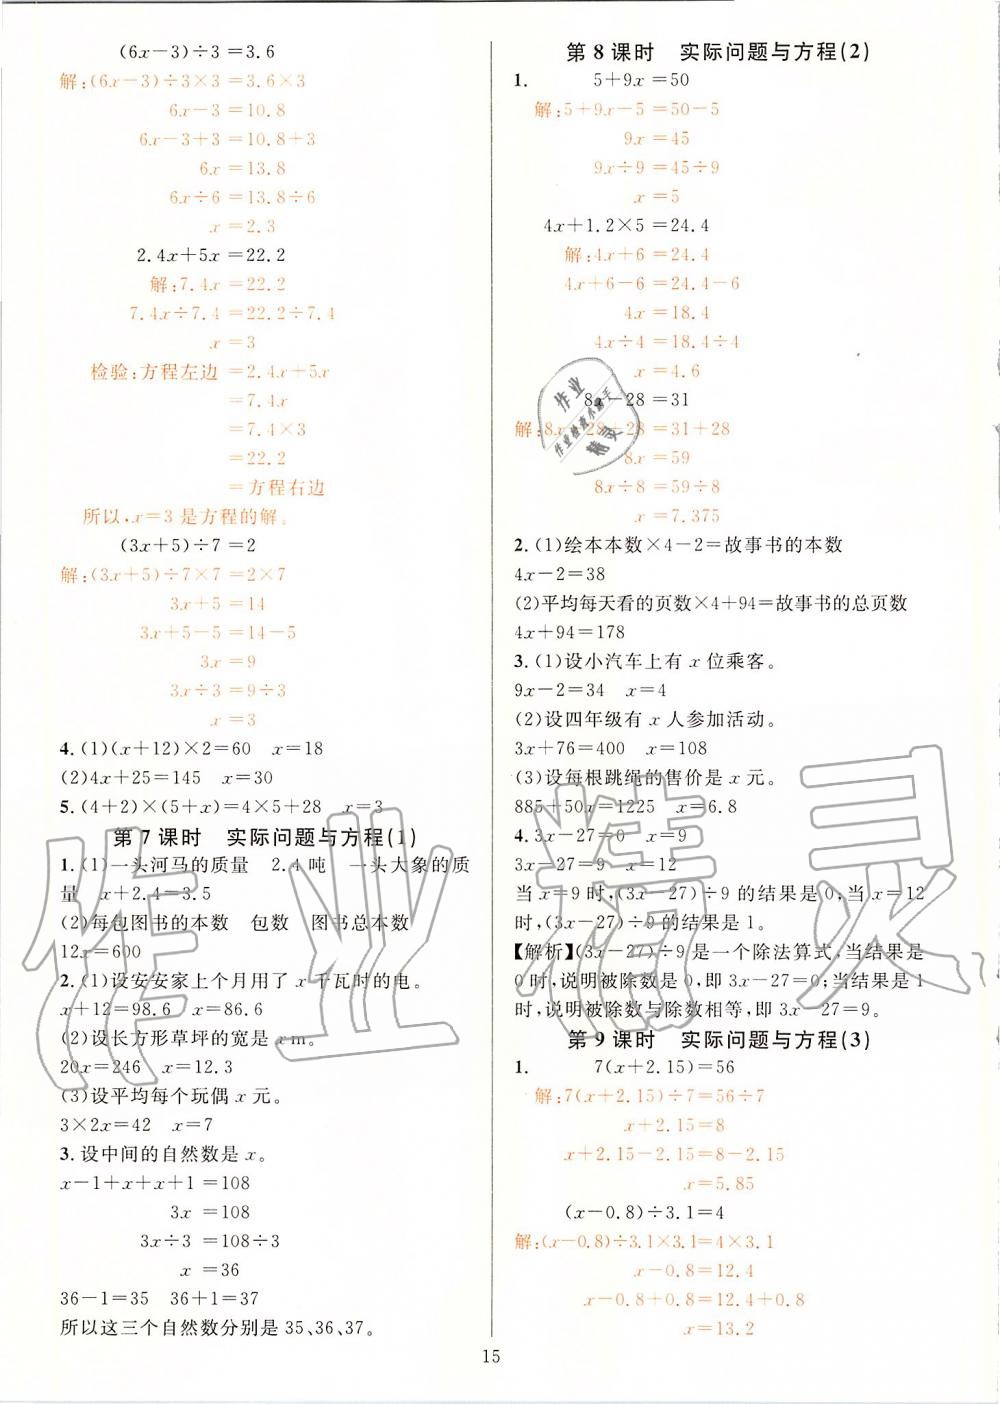 (6x-3)÷3=3.6
解:(6x-3)÷3×3=3.6×3
6x-3=10.8
6x-3+3=10.8+3
6x=13.8
6x÷6=13.8÷6
x=2.3
2.4x+5x=22.2
解:7.4x=22.2
7.4x÷7.4=22.2÷7.4
x=3
检验:方程左边=2.4x+5x
=7.4x
=7.4×3
=22.2
=方程右边
所以,x=3是方程的解。
(3x+5)÷7=2
解:(3x+5)÷7×7=2×7
3x+5=14
3x+5-5=14-5
3x=9
3x÷3=9÷3
x=3
4.(1)(x+12)×2=60 x=18
(2)4x+25=145 x=30
5.(4+2)×(5+x)=4×5+28 x=3
第7课时 实际问题与方程(1)
1.(1)一头河马的质量 2.4吨 一头大象的质
量 x+2.4=3.5
(2)每包图书的本数 包数 图书总本数
12x=600
2.(1)设安安家上个月用了x千瓦时的电。
x+12=98.6 x=86.6
(2)设长方形草坪的宽是x m。
20x=246 x=12.3
(3)设平均每个玩偶x元。
3×2x=42 x=7
3.设中间的自然数是x。
x-1+x+x+1=108
3x=108
3x÷3=108÷3
x=36
36-1=35 36+1=37
所以这三个自然数分别是35、36、37。
第8课时 实际问题与方程(2)
1. 5+9x=50
解:5+9x-5=50-5
9x=45
9x÷9=45÷9
x=5
4x+1.2×5=24.4
解:4x+6=24.4
4x+6-6=24.4-6
4x=18.4
4x÷4=18.4÷4
x=4.6
8x-28=31
解:8x-28+28=31+28
8x=59
8x÷8=59÷8
x=7.375
2.(1)绘本本数×4-2=故事书的本数
4x-2=38
(2)平均每天看的页数×4+94=故事书的总页数
4x+94=178
3.(1)设小汽车上有x位乘客。
9x-2=34 x=4
(2)设四年级有x人参加活动。
3x+76=400 x=108
(3)设每根跳绳的售价是x元。
885+50x=1225 x=6.8
4.3x-27=0 x=9
3x-27=9 x=12
当x=9时,(3x-27)÷9的结果是0,当x=12
时,(3x-27)÷9的结果是1。
【解析】(3x-27)÷9是一个除法算式,当结果是
0时,说明被除数是0,即3x-27=0;当结果是
1时,说明被除数与除数相等,即3x-27=9。
第9课时 实际问题与方程(3)
1. 7(x+2.15)=56
解:7(x+2.15)÷7=56÷7
x+2.15=8
x+2.15-2.15=8-2.15
x=5.85
(x-0.8)÷3.1=4
解:(x-0.8)÷3.1×3.1=4×3.1
x-0.8=12.4
x-0.8+0.8=12.4+0.8
x=13.2
15
作业精灵
作业
作业检查小助手
精灵